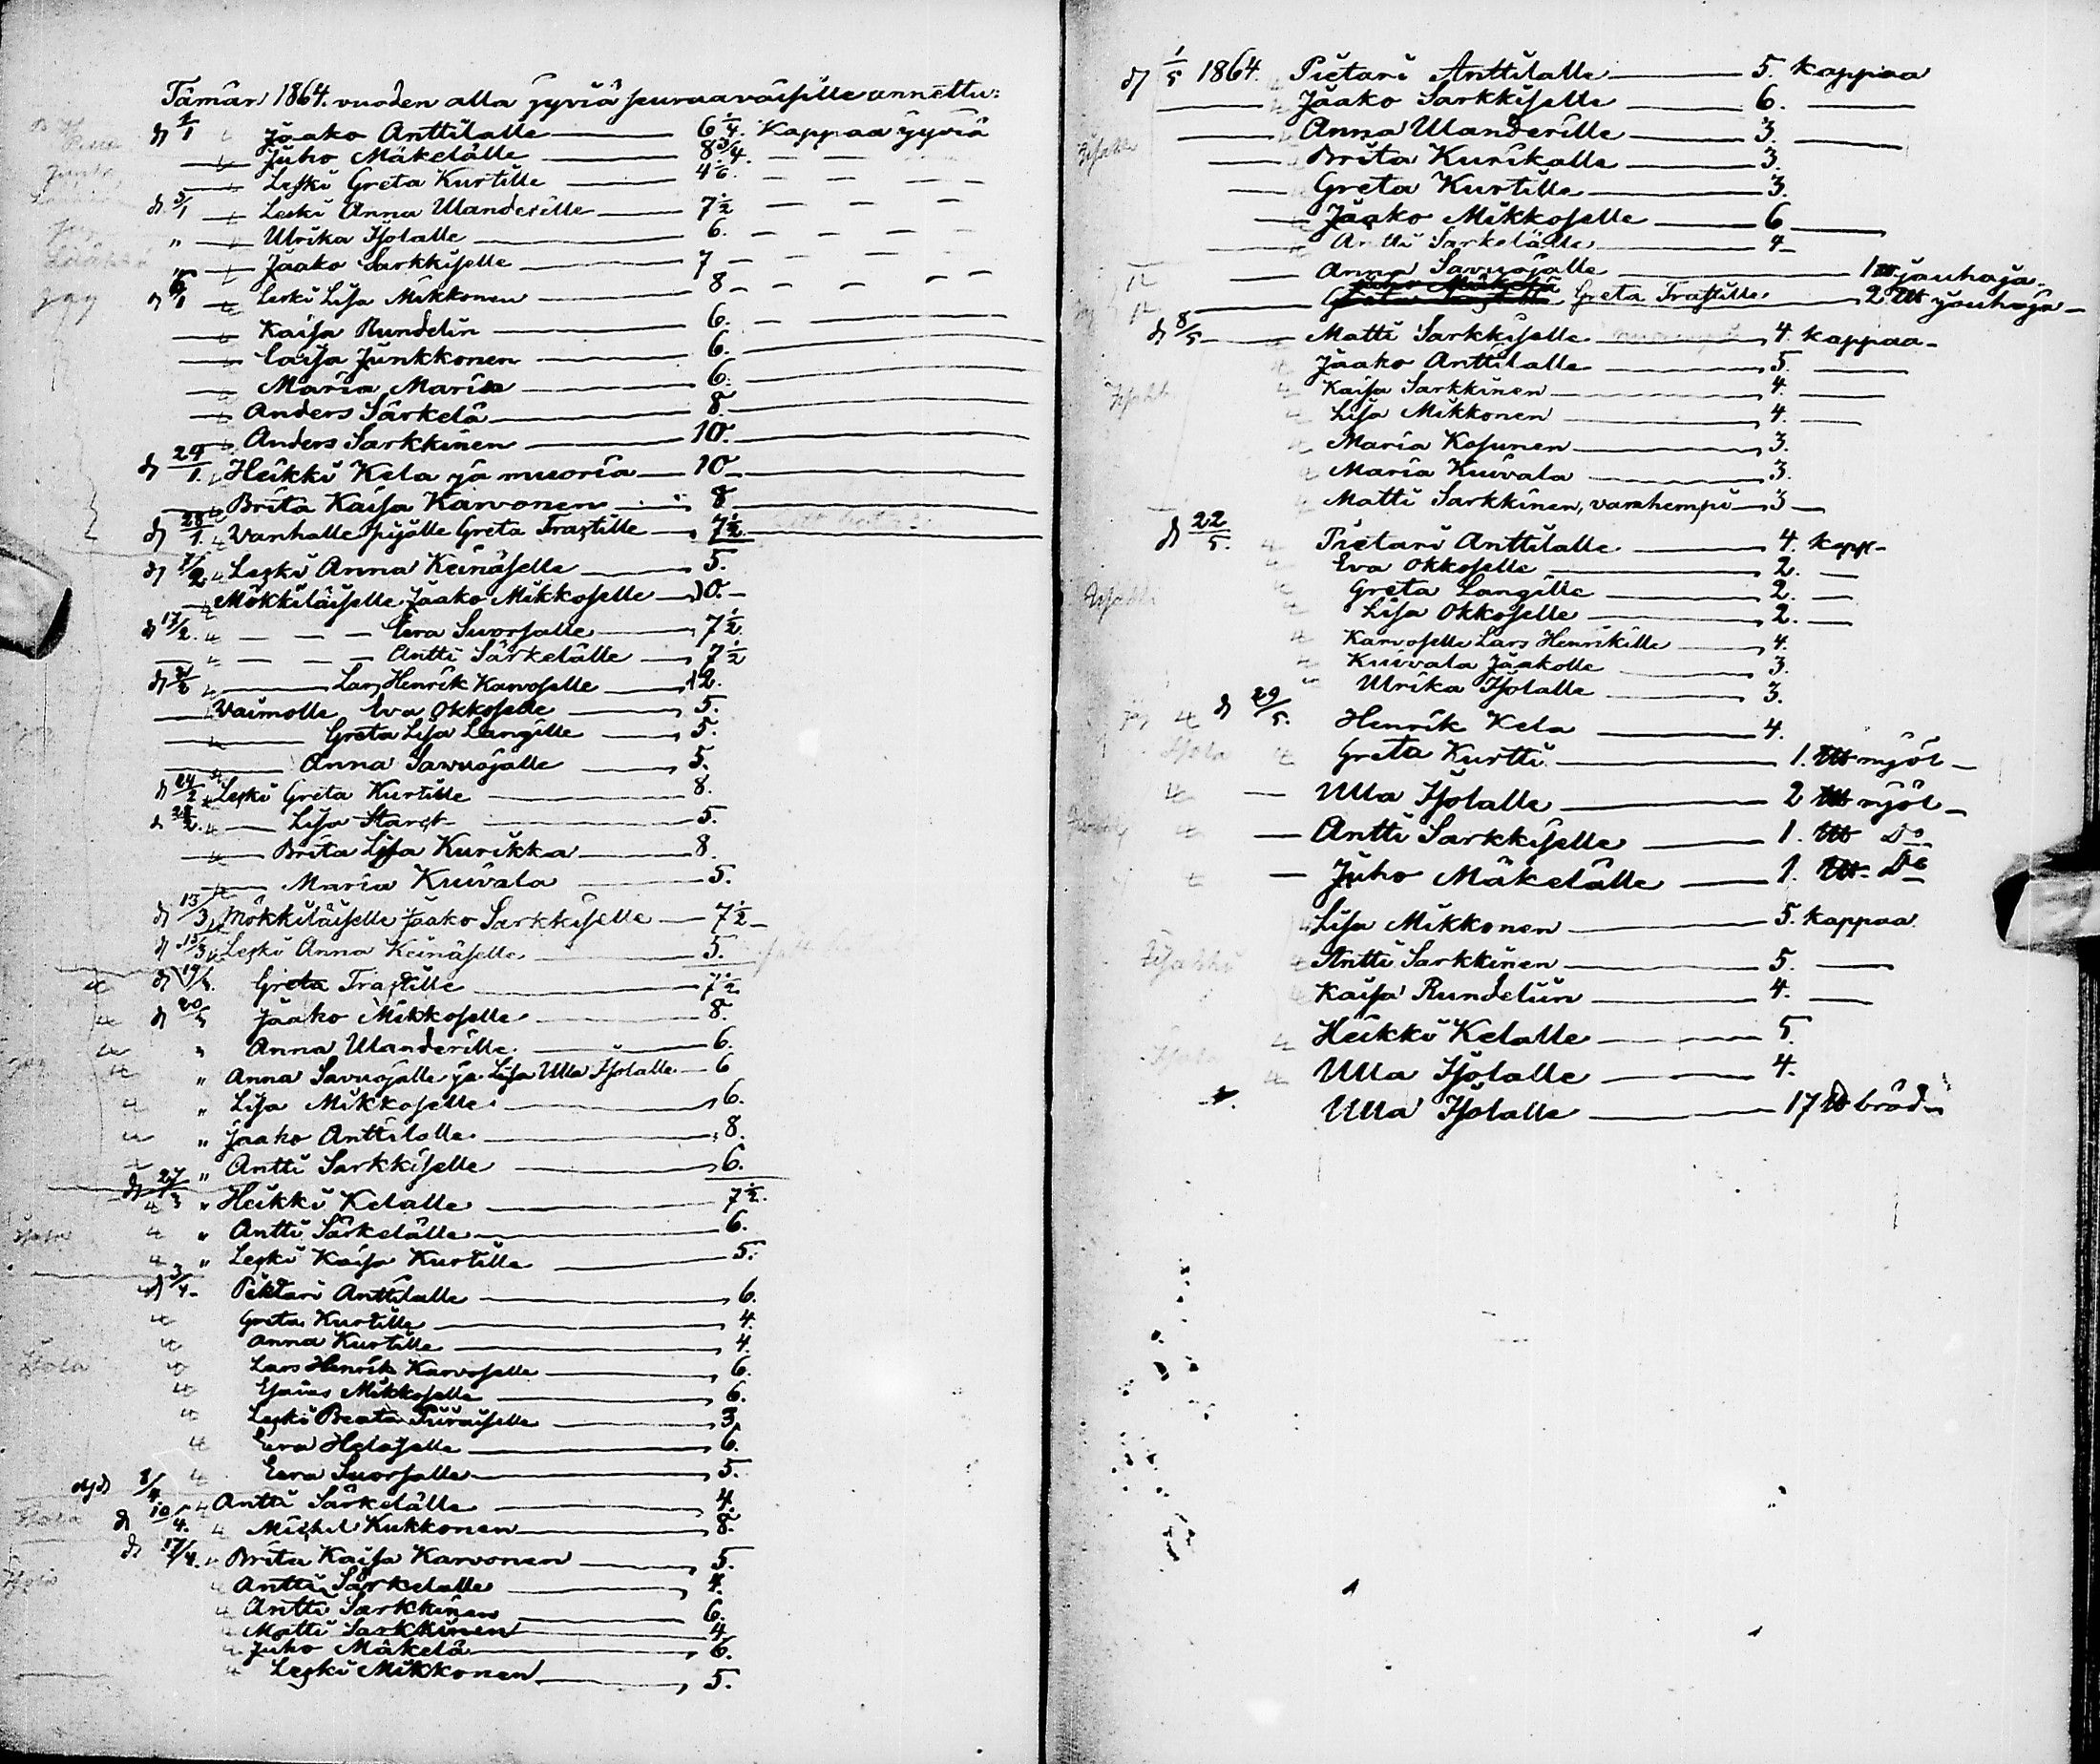 Tämän 1864. vuoden alla jyviä seuraavaisille annettu:
d 1/1 Jaako Anttilalle 6 1/4. Kappaa jyviä
Juho Mäkelälle 8 3/4.
Leski Greta Kurtille 4 1/6.
d. 3/1 Leski Anna Ulanderille 7 1/2
" Ulrika Isolalle 6.
" Jaako Sarkkiselle 7
d 6/1 Leski Lisa Mikkonen 8
Kaisa Rundelin 6.
Caisa Junkkonen 6.
Maria Maria 6.
Anders Särkelä 8.
Anders Sarkkinen 10.
d 24/1. Heikki Kela ja muoria 10
Brita Kaisa Karvonen 8
d 28/1. Vanhalle piijalle Greta Trastille 7 1/2
d 7/2 Leski Anna Keinäselle 5.
Mökkiläiselle Jaako Mikkoselle 10.
d 17/2. Eeva Suorsalle 7 1/2.
Antti Särkelälle 7 1/2
d 21/2 Lars Henrik Karvoselle 12.
Vaimolle Eva Okkoselle 5.
Greta Lisa Langille 5.
Anna Savuojalle 5.
d 24/2 Leski Greta Kurtille 8.
d 28/2. Lisa Starck 5.
Brita Lisa Kurikka 8.
Maria Kuivala 5.
d 13/3 Mökkiläiselle Jaako Sarkkiselle 7 1/2
d 15/3 Leski Anna Keinäselle 5.
d 19/3. Greta Trastille 7 1/2
d 20/3 Jaako Mikkoselle 8.
" Anna Ulanderille 6.
" Anna Savuojalle ja Lisa Ulla Isolalle 6
" Lisa Mikkoselle 6.
" Jaako Anttilalle 8.
" Antti Sarkkiselle 6.
d 27/3 " Heikki Kelalle 7 1/2.
" Antti Särkelälle 6.
" Leski Kaisa Kurtille 5.
d 3/4 Piettari Anttilalle 6.
Greta Kurtille 4.
Anna Kurtille 4.
Lars Henrik Karvoselle 6.
Esaias Mikkoselle 6.
Leski Beata Piiraiselle 3.
Eeva Heloselle 6.
Eeva Suorsalle 5.
d 8/4 Antti Särkelälle 4.
d 10/4. Michel Kukkonen 8.
d 17/4. Brita Kaisa Karvonen 5.
Antti Särkelälle 4.
Antti Sarkkinen 6.
Matti Sarkkinen 4
Juho Mäkelä 6.
Leski Mikkonen 5.
d 1/5 1864. Pietari Anttilalle 5. kappaa
Jaako Sarkkiselle 6.
Anna Ulanderille 3.
Brita Kurikalle 3.
Greta Kurtille 3.
Jaako Mikkoselle 6
Antti Särkelälle 4
Anna Savuojalle 1 ℔ jauhoja
Greta Trastille 2 ℔ jauhoja
d 8/5 Matti Sarkkiselle 4. kappaa
Jaako Anttilalle 5.
Kaisa Sarkkinen 4.
Lisa Mikkonen 4.
Maria Kosunen 3.
Maria Kuivala 3.
Matti Sarkkinen, vanhempi 3
d 22/5. Pietari Anttilalle 4. kapp
Eva Okkoselle 2.
Greta Langille 2.
Lisa Okkoselle 2.
Karvoselle Lars Henrikille 4.
Kuivala Jaakolle 3.
Ulrika Isolalle 3.
d 29/5. Henrik Kela 4.
Greta Kurtti 1. ℔ mjöl
Ulla Isolalle 2 ℔ mjöl
Antti Sarkkiselle 1. ℔ Do
Juho Mäkelälle 1. ℔ Do
Lisa Mikkonen 5. kappaa
Antti Sarkkinen 5.
Kaisa Rundeliin 4.
Heikki Kelalle 5.
Ulla Isolalle 4.
Ulla Isolalle 17 ℔ bröd